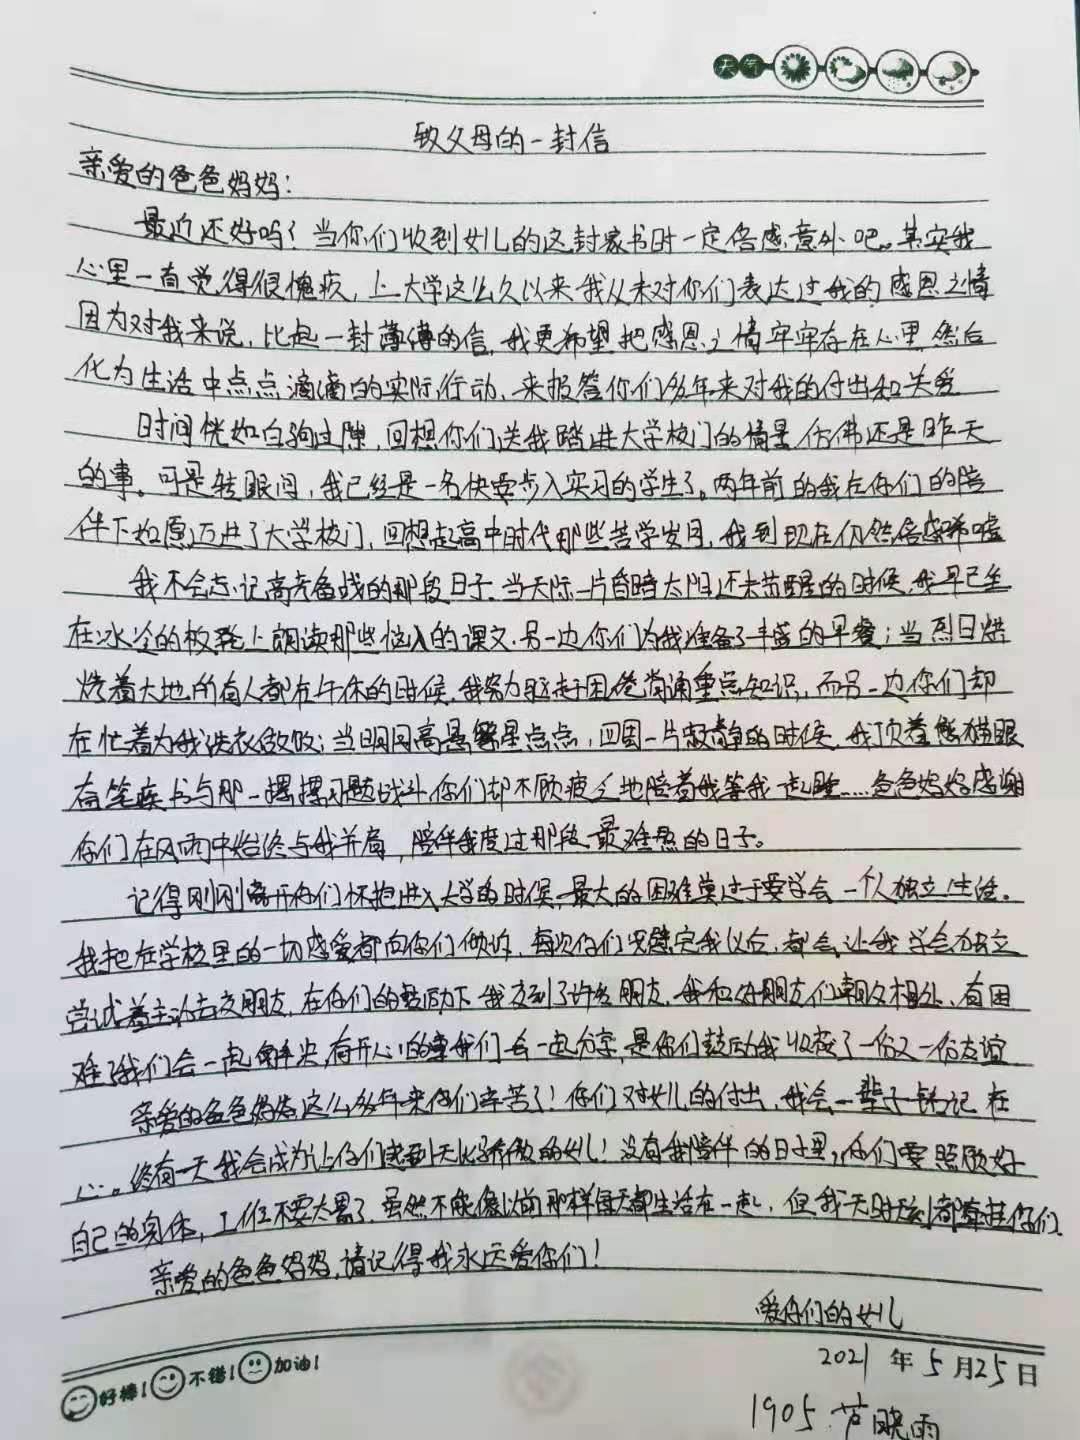 天气
致父母的一封信
亲爱的爸爸妈妈:
最近还好吗?当你们收到女儿的这封家书时一定倍感意外吧。其实我
心里一直觉得很愧疚,上大学这么久以来我从未对你们表达过我的感恩之情
因为对我来说,比起一封薄薄的信,我更希望把感恩之情牢牢存在心里,然后
化为生活中点点滴滴的实际行动,来报答你们多年来对我的付出和关爱
时间恍如白驹过隙,回想你们送我踏进大学校门的情景仿佛还是昨天
的事。可是转眼间,我已经是一名快要步入实习的学生了。两年前的我在你们的陪
伴下如愿迈进了大学校门,回想起高中时代那些苦学岁月,我到现在仍然倍感唏嘘
我不会忘记高考备战的那段日子.当天际一片昏暗太阳还未苏醒的时候,我早已坐
在冰冷的板凳上朗读那些恼人的课文.另一边你们为我准备了丰盛的早餐;当烈日烘
烤着大地,所有人都在午休的时候,我努力驱赶困倦背诵重点知识,而另一边你们却
在忙着为我洗衣做饭;当明月高悬繁星点点,四周一片寂静的时候,我顶着熊猫眼
奋笔疾书与那一摞摞习题战斗你们却不顾疲乏地陪着我等我一起睡……爸爸妈妈感谢
你们在风雨中始终与我并肩,陪伴我度过那段最难熬的日子。
记得刚刚离开你们怀抱进入大学的时候,最大的困难莫过于要学会一个人独立生活。
我把在学校里的一切感受都向你们倾诉,每次你们安慰完我以后,都会让我学会独立
尝试着主动去交朋友,在你们的鼓励下我交到了许多朋友,我和好朋友们朝夕相处,有困
难了我们会一起解决,有开心的事我们会一起分享,是你们鼓励我收获了一份又一份友谊
亲爱的爸爸妈妈这么多年来你们辛苦了!你们对女儿的付出,我会一辈子铭记在
心。终有一天我会成为让你们感到无比骄傲的女儿!没有我陪伴的日子里,你们要照顾好
自己的身体,工作不要太累了.虽然不能像以前那样每天都生活在一起,但我无时无刻都牵挂你们.
亲爱的爸爸妈妈,请记得我永远爱你们!
爱你们的女儿
2021年5月25日
好棒! 不错! 加油!
1905.晓雨